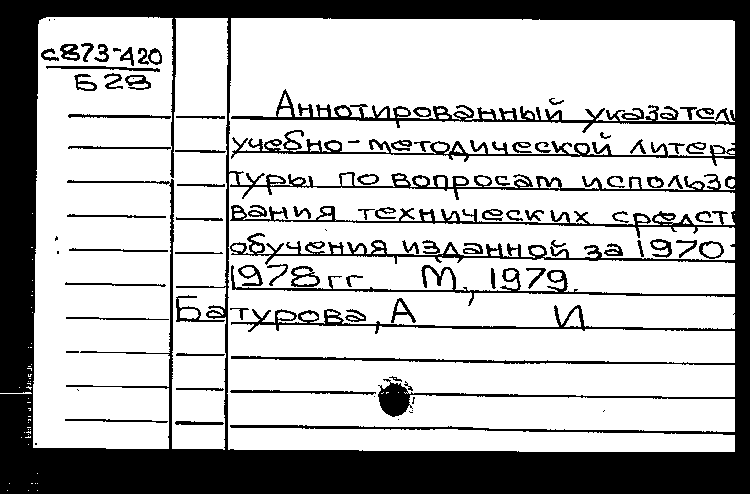 с873-420
Б28
Аннотированный указател
учебно-методической литера
туры по вопросам использо
вания технических средст
обучения, изданной за 1970-
1978 гг. М., 1979.
Батурова, А И